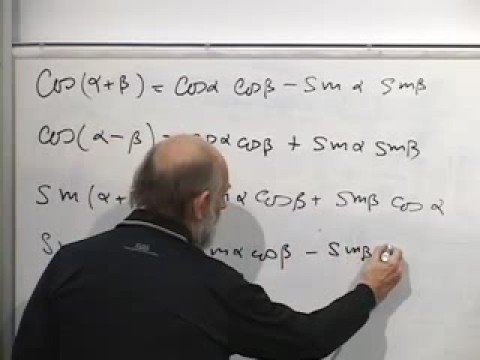 Cos(α+β) = Cosα Cosβ − Sin α Sinβ
Cos(α−β) = Cosα Cosβ + Sinα Sinβ
Sin(α+ α Cosβ + Sinβ Cos α
Sinα Cosβ − Sinβ